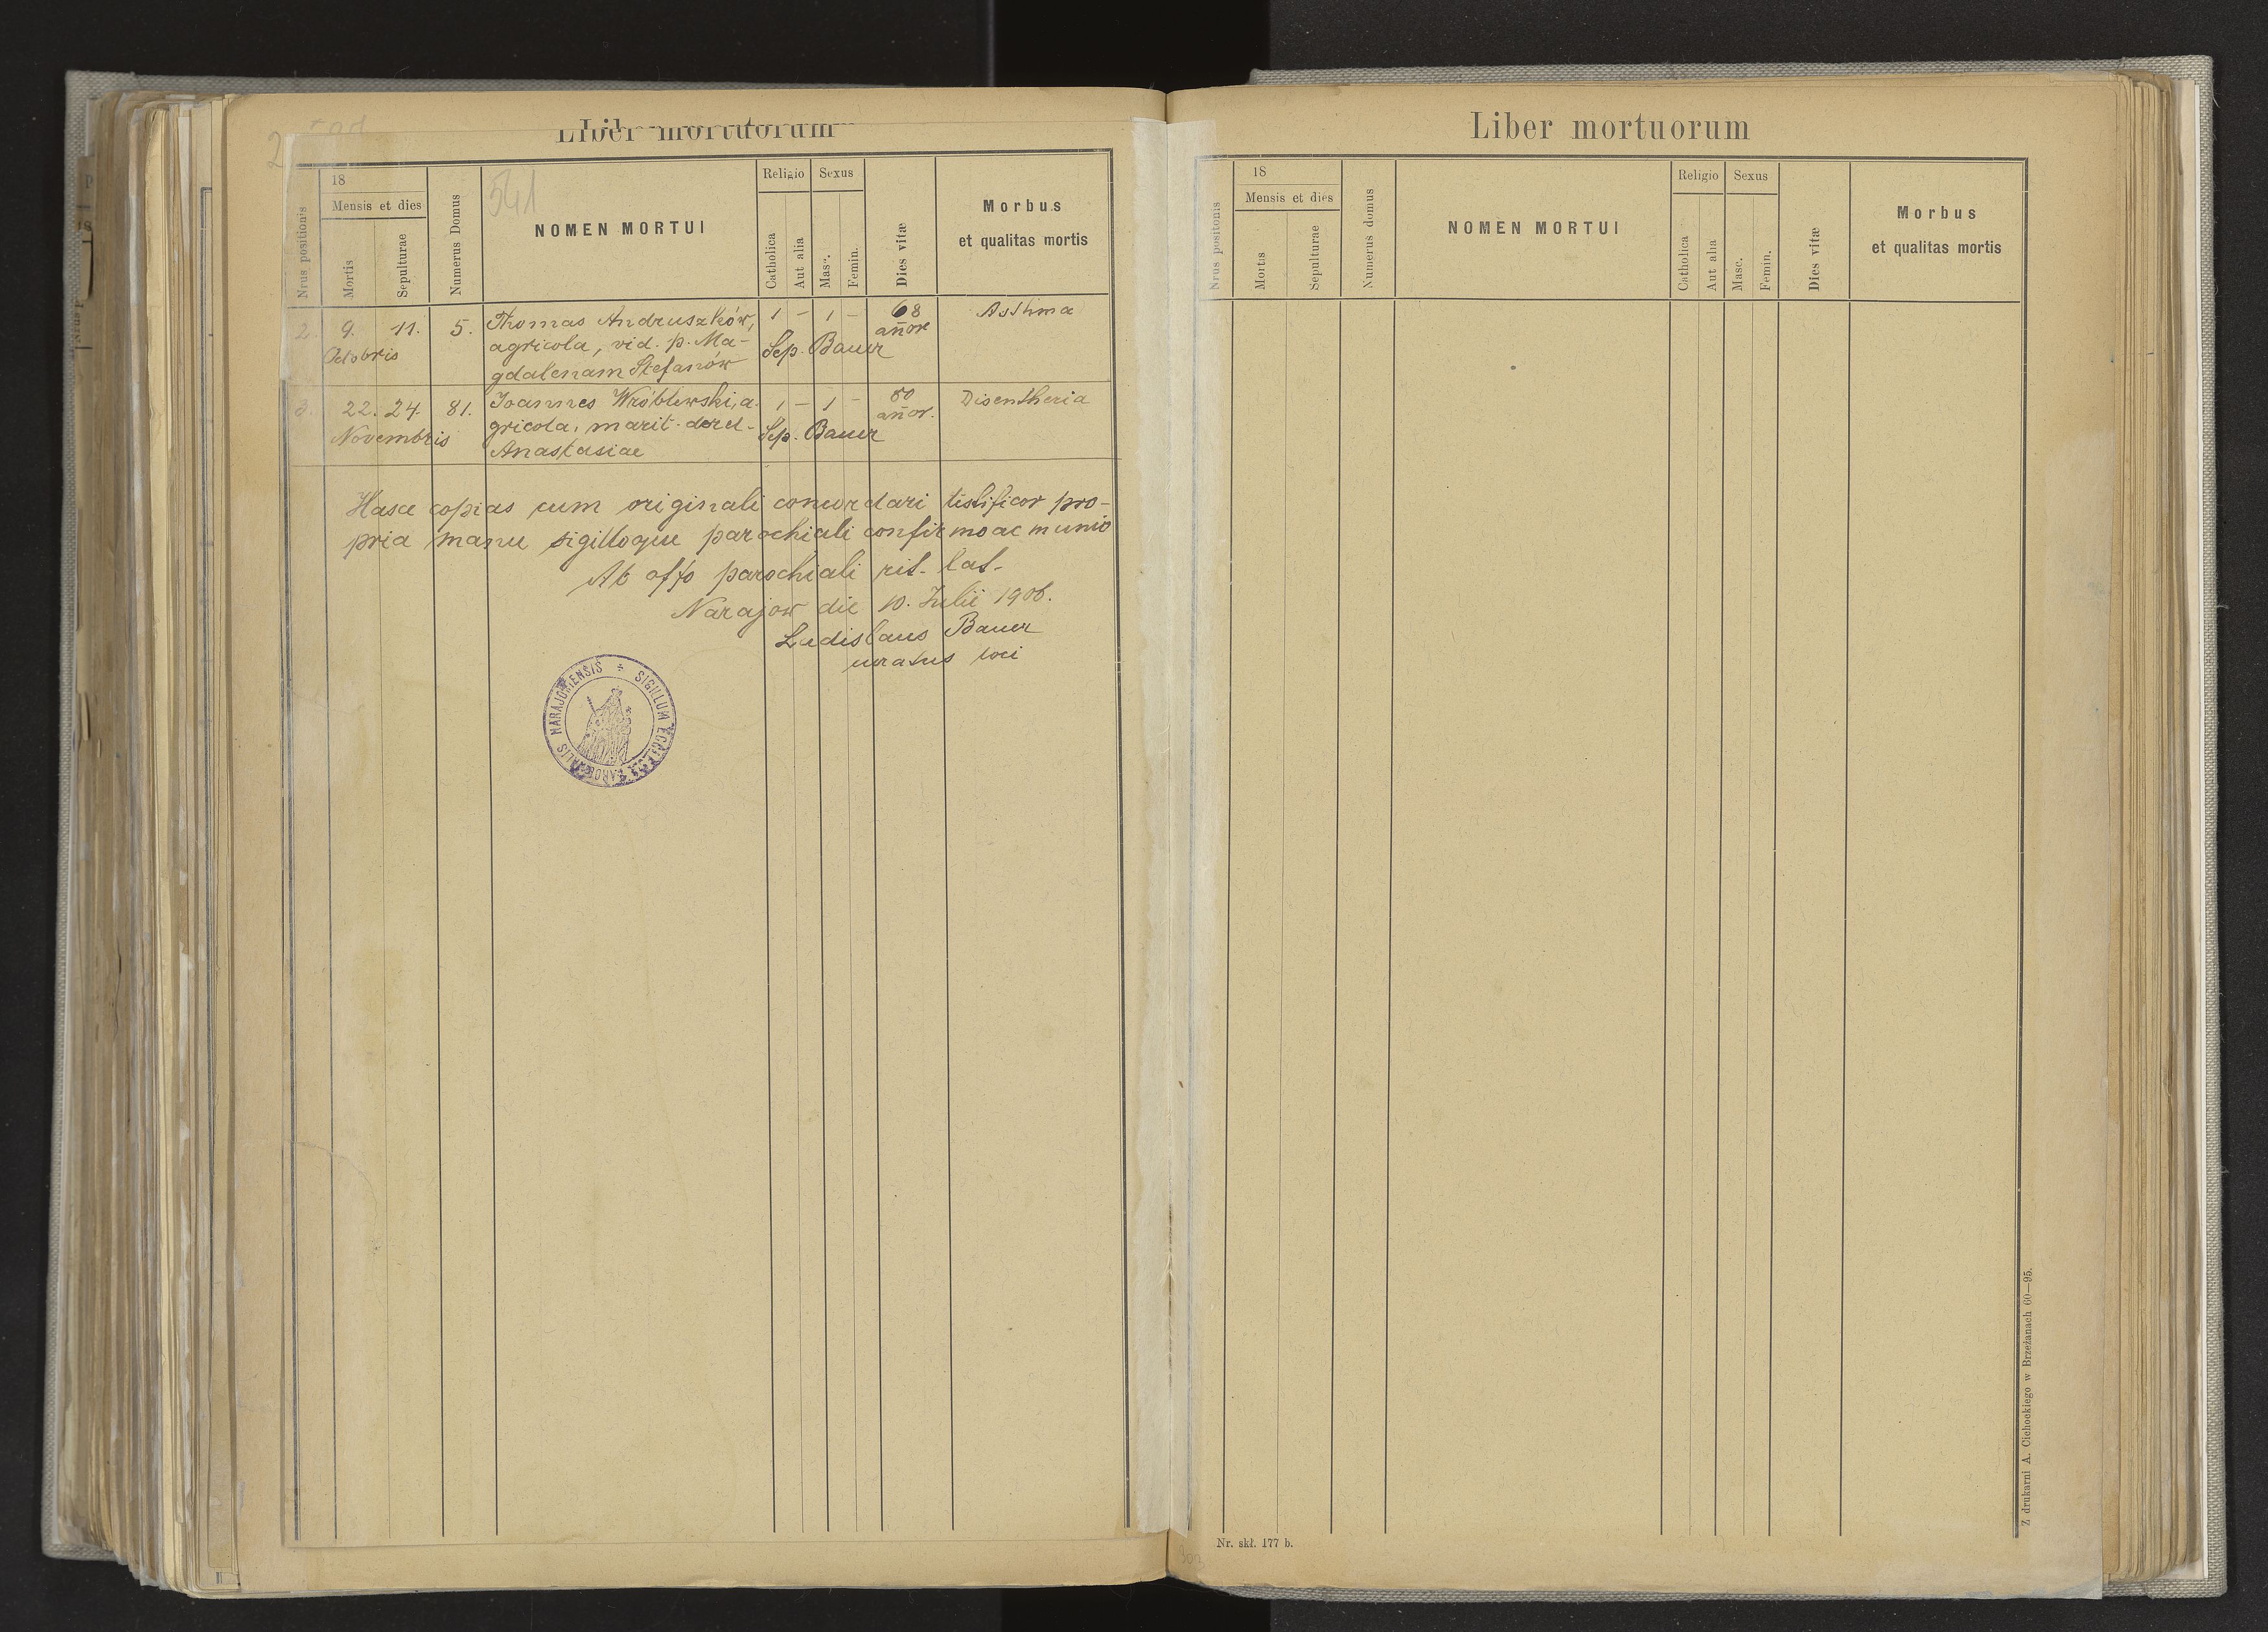 Liber mortuorum
541
Nrus positionis
18
Mensis et dies
Mortis
Sepulturae
Numerus Domus
NOMEN MORTUI
Religio
Catholica
Aut alia
Sexus
Masc.
Femin.
Dies vitæ
Morbus
et qualitas mortis
2. 9. 11. 5. Thomas Andruszków, 1 – 1 – 68 Asthma
Octobris agricola, vid. p. Ma- Sep. Bauer añor
gdalenam Stefanów
3. 22. 24. 81. Joannes Wróblewski, a. 1 – 1 – 80 Disentheria
Novembris gricola, marit. derel- Sep. Bauer añor.
Anastasiae
Hasce copias cum originali concordari testificor pro-
pria manu sigilloque parochiali confirmo ac munio
Ab offo parochiali rit. lat.
Narajow die 10. Julii 1906.
Ladislaus Bauer
curatus loci
SIGILLUM ECCLES. PAROCHIALIS NARAJOWIENSIS
Liber mortuorum
Nrus positonis
18
Mensis et dies
Mortis
Sepulturae
Numerus domus
NOMEN MORTUI
Religio
Catholica
Aut alia
Sexus
Masc.
Femin.
Dies vitæ
Morbus
et qualitas mortis
Z drukarni A. Cichockiego w Brzeżanach 60—95.
Nr. skł. 177 b.